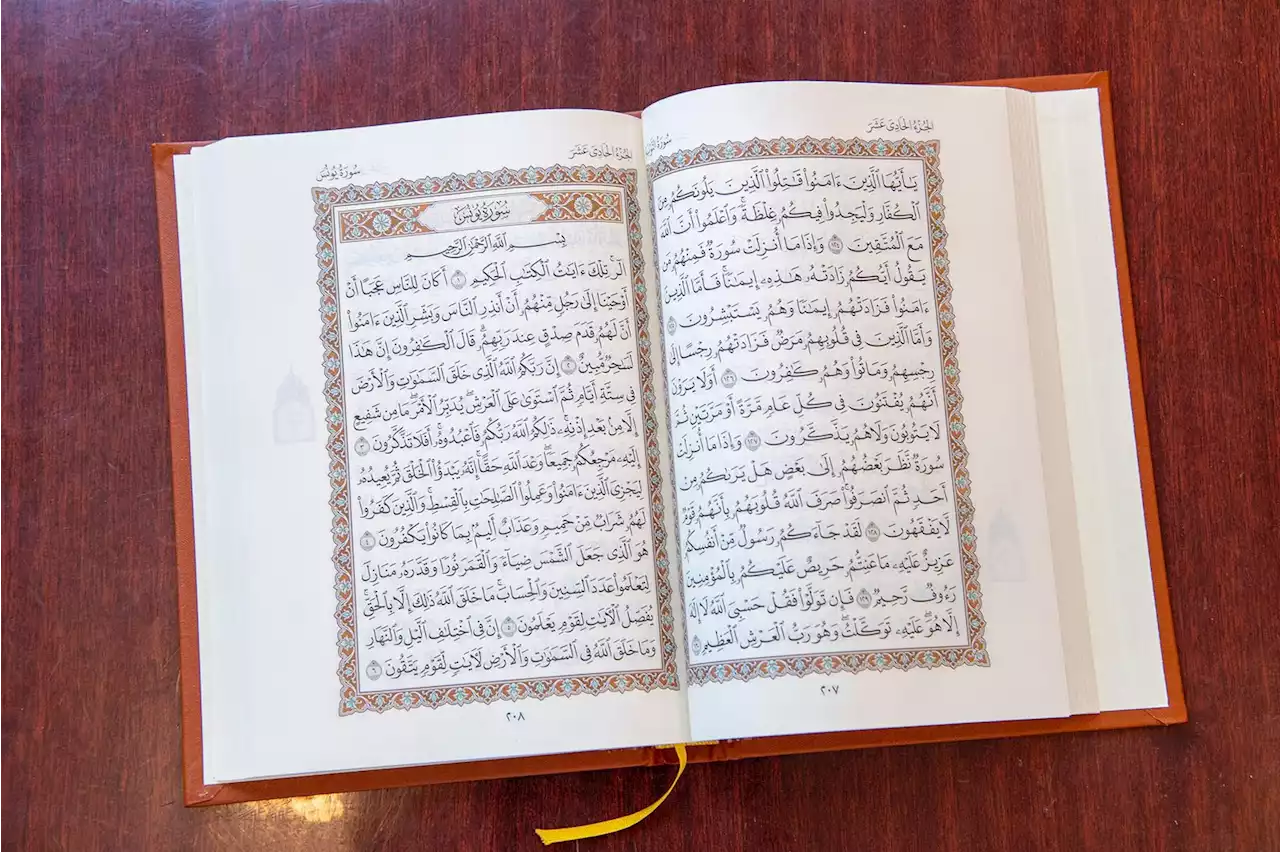 الجُزْءُ الحَادِى عَشَرَ
سُورَةُ التَّوْبَةِ
يَٰٓأَيُّهَا ٱلَّذِينَ ءَامَنُوا۟ قَٰتِلُوا۟ ٱلَّذِينَ يَلُونَكُم مِّنَ
ٱلْكُفَّارِ وَلْيَجِدُوا۟ فِيكُمْ غِلْظَةً ۚ وَٱعْلَمُوٓا۟ أَنَّ ٱللَّهَ
مَعَ ٱلْمُتَّقِينَ ١٢٣ وَإِذَا مَآ أُنزِلَتْ سُورَةٌ فَمِنْهُم مَّن
يَقُولُ أَيُّكُمْ زَادَتْهُ هَٰذِهِۦٓ إِيمَٰنًا ۚ فَأَمَّا ٱلَّذِينَ
ءَامَنُوا۟ فَزَادَتْهُمْ إِيمَٰنًا وَهُمْ يَسْتَبْشِرُونَ ١٢٤
وَأَمَّا ٱلَّذِينَ فِى قُلُوبِهِم مَّرَضٌ فَزَادَتْهُمْ رِجْسًا إِلَىٰ
رِجْسِهِمْ وَمَاتُوا۟ وَهُمْ كَٰفِرُونَ ١٢٥ أَوَلَا يَرَوْنَ
أَنَّهُمْ يُفْتَنُونَ فِى كُلِّ عَامٍ مَّرَّةً أَوْ مَرَّتَيْنِ ثُمَّ
لَا يَتُوبُونَ وَلَا هُمْ يَذَّكَّرُونَ ١٢٦ وَإِذَا مَآ أُنزِلَتْ
سُورَةٌ نَّظَرَ بَعْضُهُمْ إِلَىٰ بَعْضٍ هَلْ يَرَىٰكُم مِّنْ
أَحَدٍ ثُمَّ ٱنصَرَفُوا۟ ۚ صَرَفَ ٱللَّهُ قُلُوبَهُم بِأَنَّهُمْ قَوْمٌ
لَّا يَفْقَهُونَ ١٢٧ لَقَدْ جَآءَكُمْ رَسُولٌ مِّنْ أَنفُسِكُمْ
عَزِيزٌ عَلَيْهِ مَا عَنِتُّمْ حَرِيصٌ عَلَيْكُم بِٱلْمُؤْمِنِينَ
رَءُوفٌ رَّحِيمٌ ١٢٨ فَإِن تَوَلَّوْا۟ فَقُلْ حَسْبِىَ ٱللَّهُ لَآ إِلَٰهَ
إِلَّا هُوَ ۖ عَلَيْهِ تَوَكَّلْتُ ۖ وَهُوَ رَبُّ ٱلْعَرْشِ ٱلْعَظِيمِ ١٢٩
٢٠٧
الجُزْءُ الحَادِى عَشَرَ
سُورَةُ يُونُسَ
سُورَةُ يُونُسَ
بِسْمِ ٱللَّهِ ٱلرَّحْمَٰنِ ٱلرَّحِيمِ
الٓر ۚ تِلْكَ ءَايَٰتُ ٱلْكِتَٰبِ ٱلْحَكِيمِ ١ أَكَانَ لِلنَّاسِ عَجَبًا أَنْ
أَوْحَيْنَآ إِلَىٰ رَجُلٍ مِّنْهُمْ أَنْ أَنذِرِ ٱلنَّاسَ وَبَشِّرِ ٱلَّذِينَ ءَامَنُوٓا۟
أَنَّ لَهُمْ قَدَمَ صِدْقٍ عِندَ رَبِّهِمْ ۗ قَالَ ٱلْكَٰفِرُونَ إِنَّ هَٰذَا
لَسَٰحِرٌ مُّبِينٌ ٢ إِنَّ رَبَّكُمُ ٱللَّهُ ٱلَّذِى خَلَقَ ٱلسَّمَٰوَٰتِ وَٱلْأَرْضَ
فِى سِتَّةِ أَيَّامٍ ثُمَّ ٱسْتَوَىٰ عَلَى ٱلْعَرْشِ ۖ يُدَبِّرُ ٱلْأَمْرَ ۖ مَا مِن شَفِيعٍ
إِلَّا مِنۢ بَعْدِ إِذْنِهِۦ ۚ ذَٰلِكُمُ ٱللَّهُ رَبُّكُمْ فَٱعْبُدُوهُ ۚ أَفَلَا تَذَكَّرُونَ ٣
إِلَيْهِ مَرْجِعُكُمْ جَمِيعًا ۖ وَعْدَ ٱللَّهِ حَقًّا ۚ إِنَّهُۥ يَبْدَؤُا۟ ٱلْخَلْقَ ثُمَّ يُعِيدُهُۥ
لِيَجْزِىَ ٱلَّذِينَ ءَامَنُوا۟ وَعَمِلُوا۟ ٱلصَّٰلِحَٰتِ بِٱلْقِسْطِ ۚ وَٱلَّذِينَ كَفَرُوا۟
لَهُمْ شَرَابٌ مِّنْ حَمِيمٍ وَعَذَابٌ أَلِيمٌۢ بِمَا كَانُوا۟ يَكْفُرُونَ ٤
هُوَ ٱلَّذِى جَعَلَ ٱلشَّمْسَ ضِيَآءً وَٱلْقَمَرَ نُورًا وَقَدَّرَهُۥ مَنَازِلَ
لِتَعْلَمُوا۟ عَدَدَ ٱلسِّنِينَ وَٱلْحِسَابَ ۚ مَا خَلَقَ ٱللَّهُ ذَٰلِكَ إِلَّا بِٱلْحَقِّ ۚ
يُفَصِّلُ ٱلْءَايَٰتِ لِقَوْمٍ يَعْلَمُونَ ٥ إِنَّ فِى ٱخْتِلَٰفِ ٱلَّيْلِ وَٱلنَّهَارِ
وَمَا خَلَقَ ٱللَّهُ فِى ٱلسَّمَٰوَٰتِ وَٱلْأَرْضِ لَءَايَٰتٍ لِّقَوْمٍ يَتَّقُونَ ٦
٢٠٨